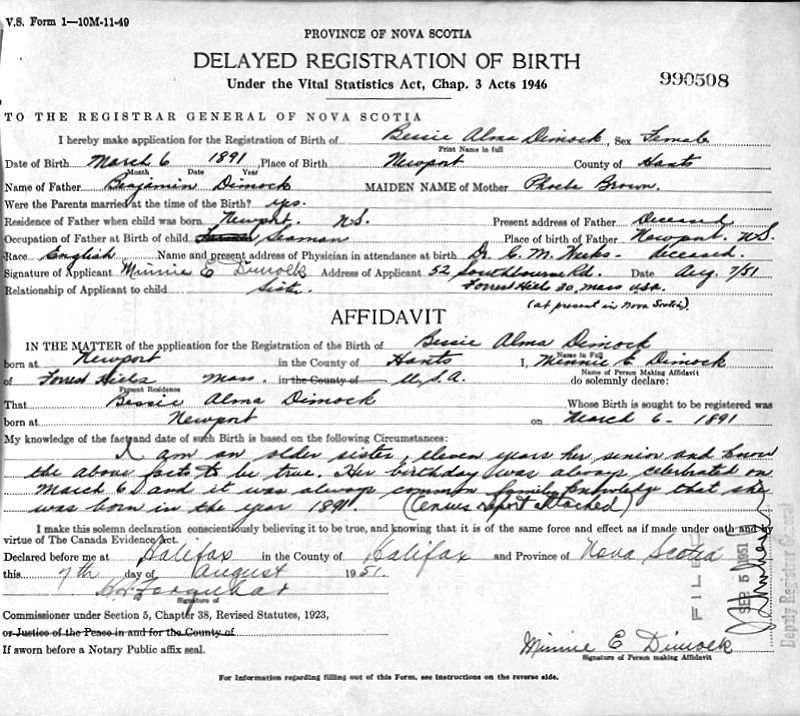 V.S. Form 1—10M-11-49
PROVINCE OF NOVA SCOTIA
DELAYED REGISTRATION OF BIRTH
Under the Vital Statistics Act, Chap. 3 Acts 1946
990508
TO THE REGISTRAR GENERAL OF NOVA SCOTIA
I hereby make application for the Registration of Birth of Bessie Alma Dimock, Sex Female
Print Name in full
Date of Birth March 6 1891 Place of Birth Newport County of Hants
Month Date Year
Name of Father Benjamin Dimock MAIDEN NAME of Mother Phoebe Brown.
Were the Parents married at the time of the Birth? yes.
Residence of Father when child was born Newport. N.S. Present address of Father Deceased
Occupation of Father at Birth of child Seaman Place of birth of Father Newport. N.S.
Race English Name and present address of Physician in attendance at birth Dr. C. M. deceased.
Signature of Applicant Minnie E Dimock Address of Applicant 52 Southbourne Rd. Date Aug. 7/51
Relationship of Applicant to child Sister Forrest Hills 30, Mass USA.
(at present in Nova Scotia).
AFFIDAVIT
IN THE MATTER of the application for the Registration of the Birth of Bessie Alma Dimock
Name in Full
born at Newport in the County of Hants I, Minnie E Dimock
Name of Person Making Affidavit
of Forrest Hills Mass. in the County of U.S.A. do solemnly declare:
Present Residence
That Bessie Alma Dimock Whose Birth is sought to be registered was
born at Newport on March 6 - 1891
My knowledge of the fact and date of such Birth is based on the following Circumstances:
I am an older sister, eleven years her senior and know
the above facts to be true. Her birthday was always celebrated on
March 6 and it was always common family knowledge that she
was born in the year 1891. (Census report attached)
I make this solemn declaration conscientiously believing it to be true, and knowing that it is of the same force and effect as if made under oath and by
virtue of The Canada Evidence Act.
Declared before me at Halifax in the County of Halifax and Province of Nova Scotia
this 7th day of August 1951.
H. Farquhar
Signature of
Commissioner under Section 5, Chapter 38, Revised Statutes, 1923,
or Justice of the Peace in and for the County of
If sworn before a Notary Public affix seal.
Minnie E Dimock
Signature of Person making Affidavit
For Information regarding filling out of this Form, see instructions on the reverse side.
FILED
SEP 5 1951
Deputy Registrar General